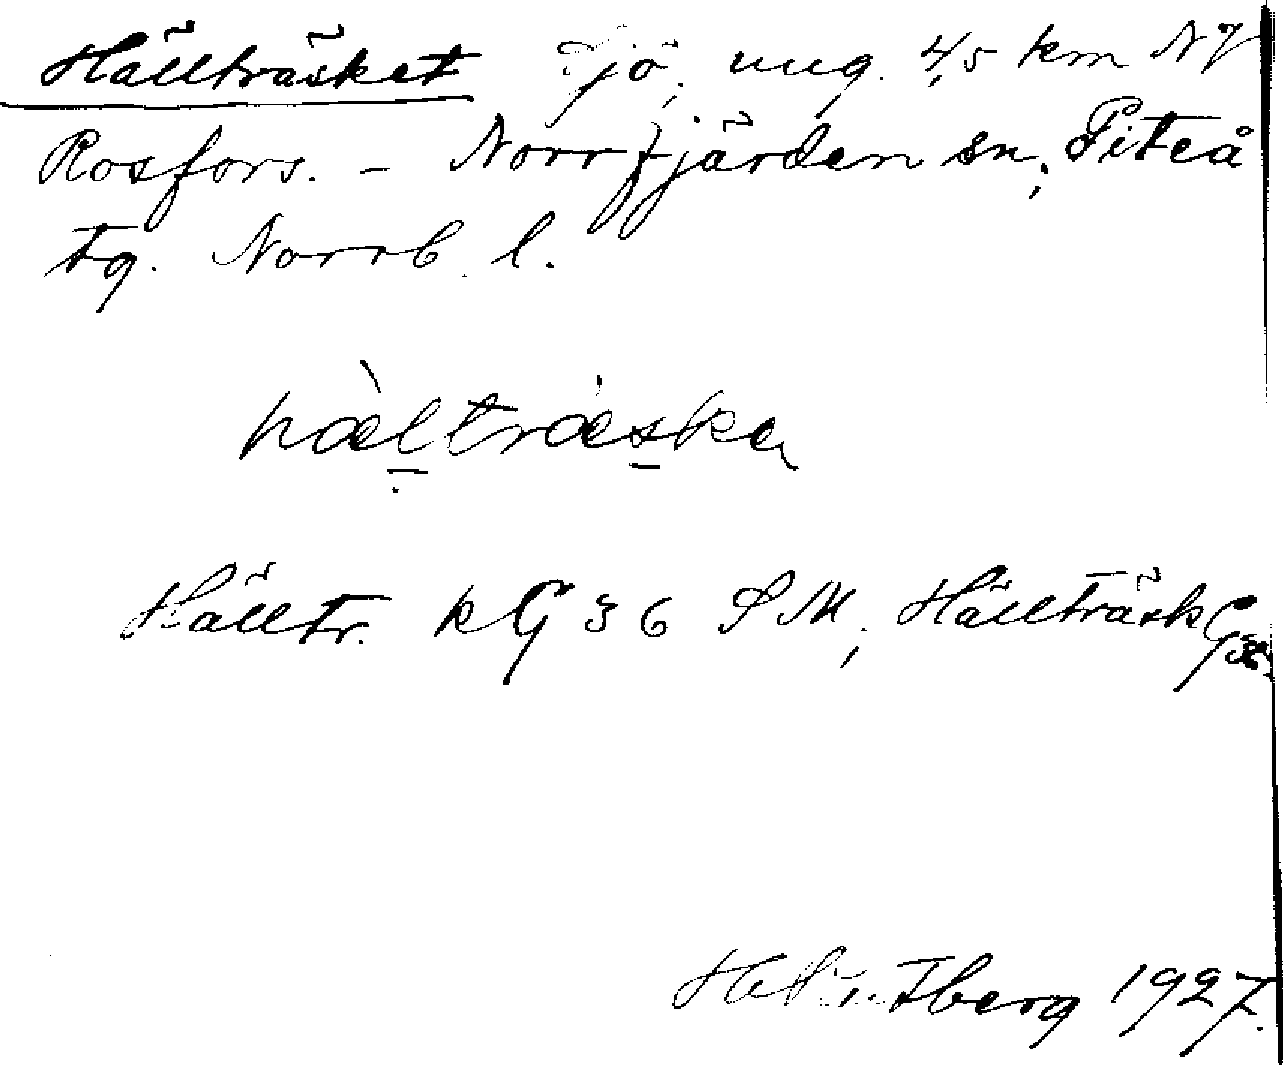 Hällträsket Sjö, ung. 4,5 km NV
Rosfors. – Norrfjärden sn; Piteå
tg. Norrb. l.
hæ̀ltræska
Hälltr. kG 36 SM; Hällträsk G
berg 1927.